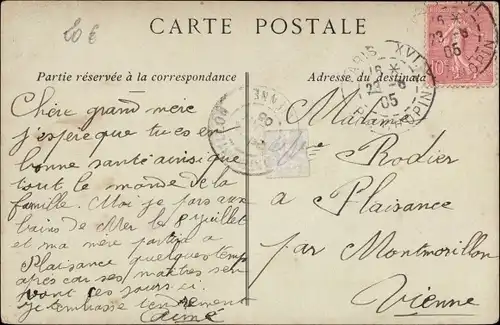 20 €
CARTE POSTALE
Partie réservée à la correspondance
Adresse du destinata
Chère grand mère
j'espère que tu es en
bonne santé ainsi que
tout le monde de la
famille. Moi je pars aux
bains de Mer le 8 juillet
et ma mère partira a
Plaisance quelques temps
après car ses maîtres s'en
vont ces jours ci
je t'embrasse tendrement
Aimé
Madame
Rodier
a Plaisance
par Montmorillon
Vienne
PARIS XVI
23 -6
05
10